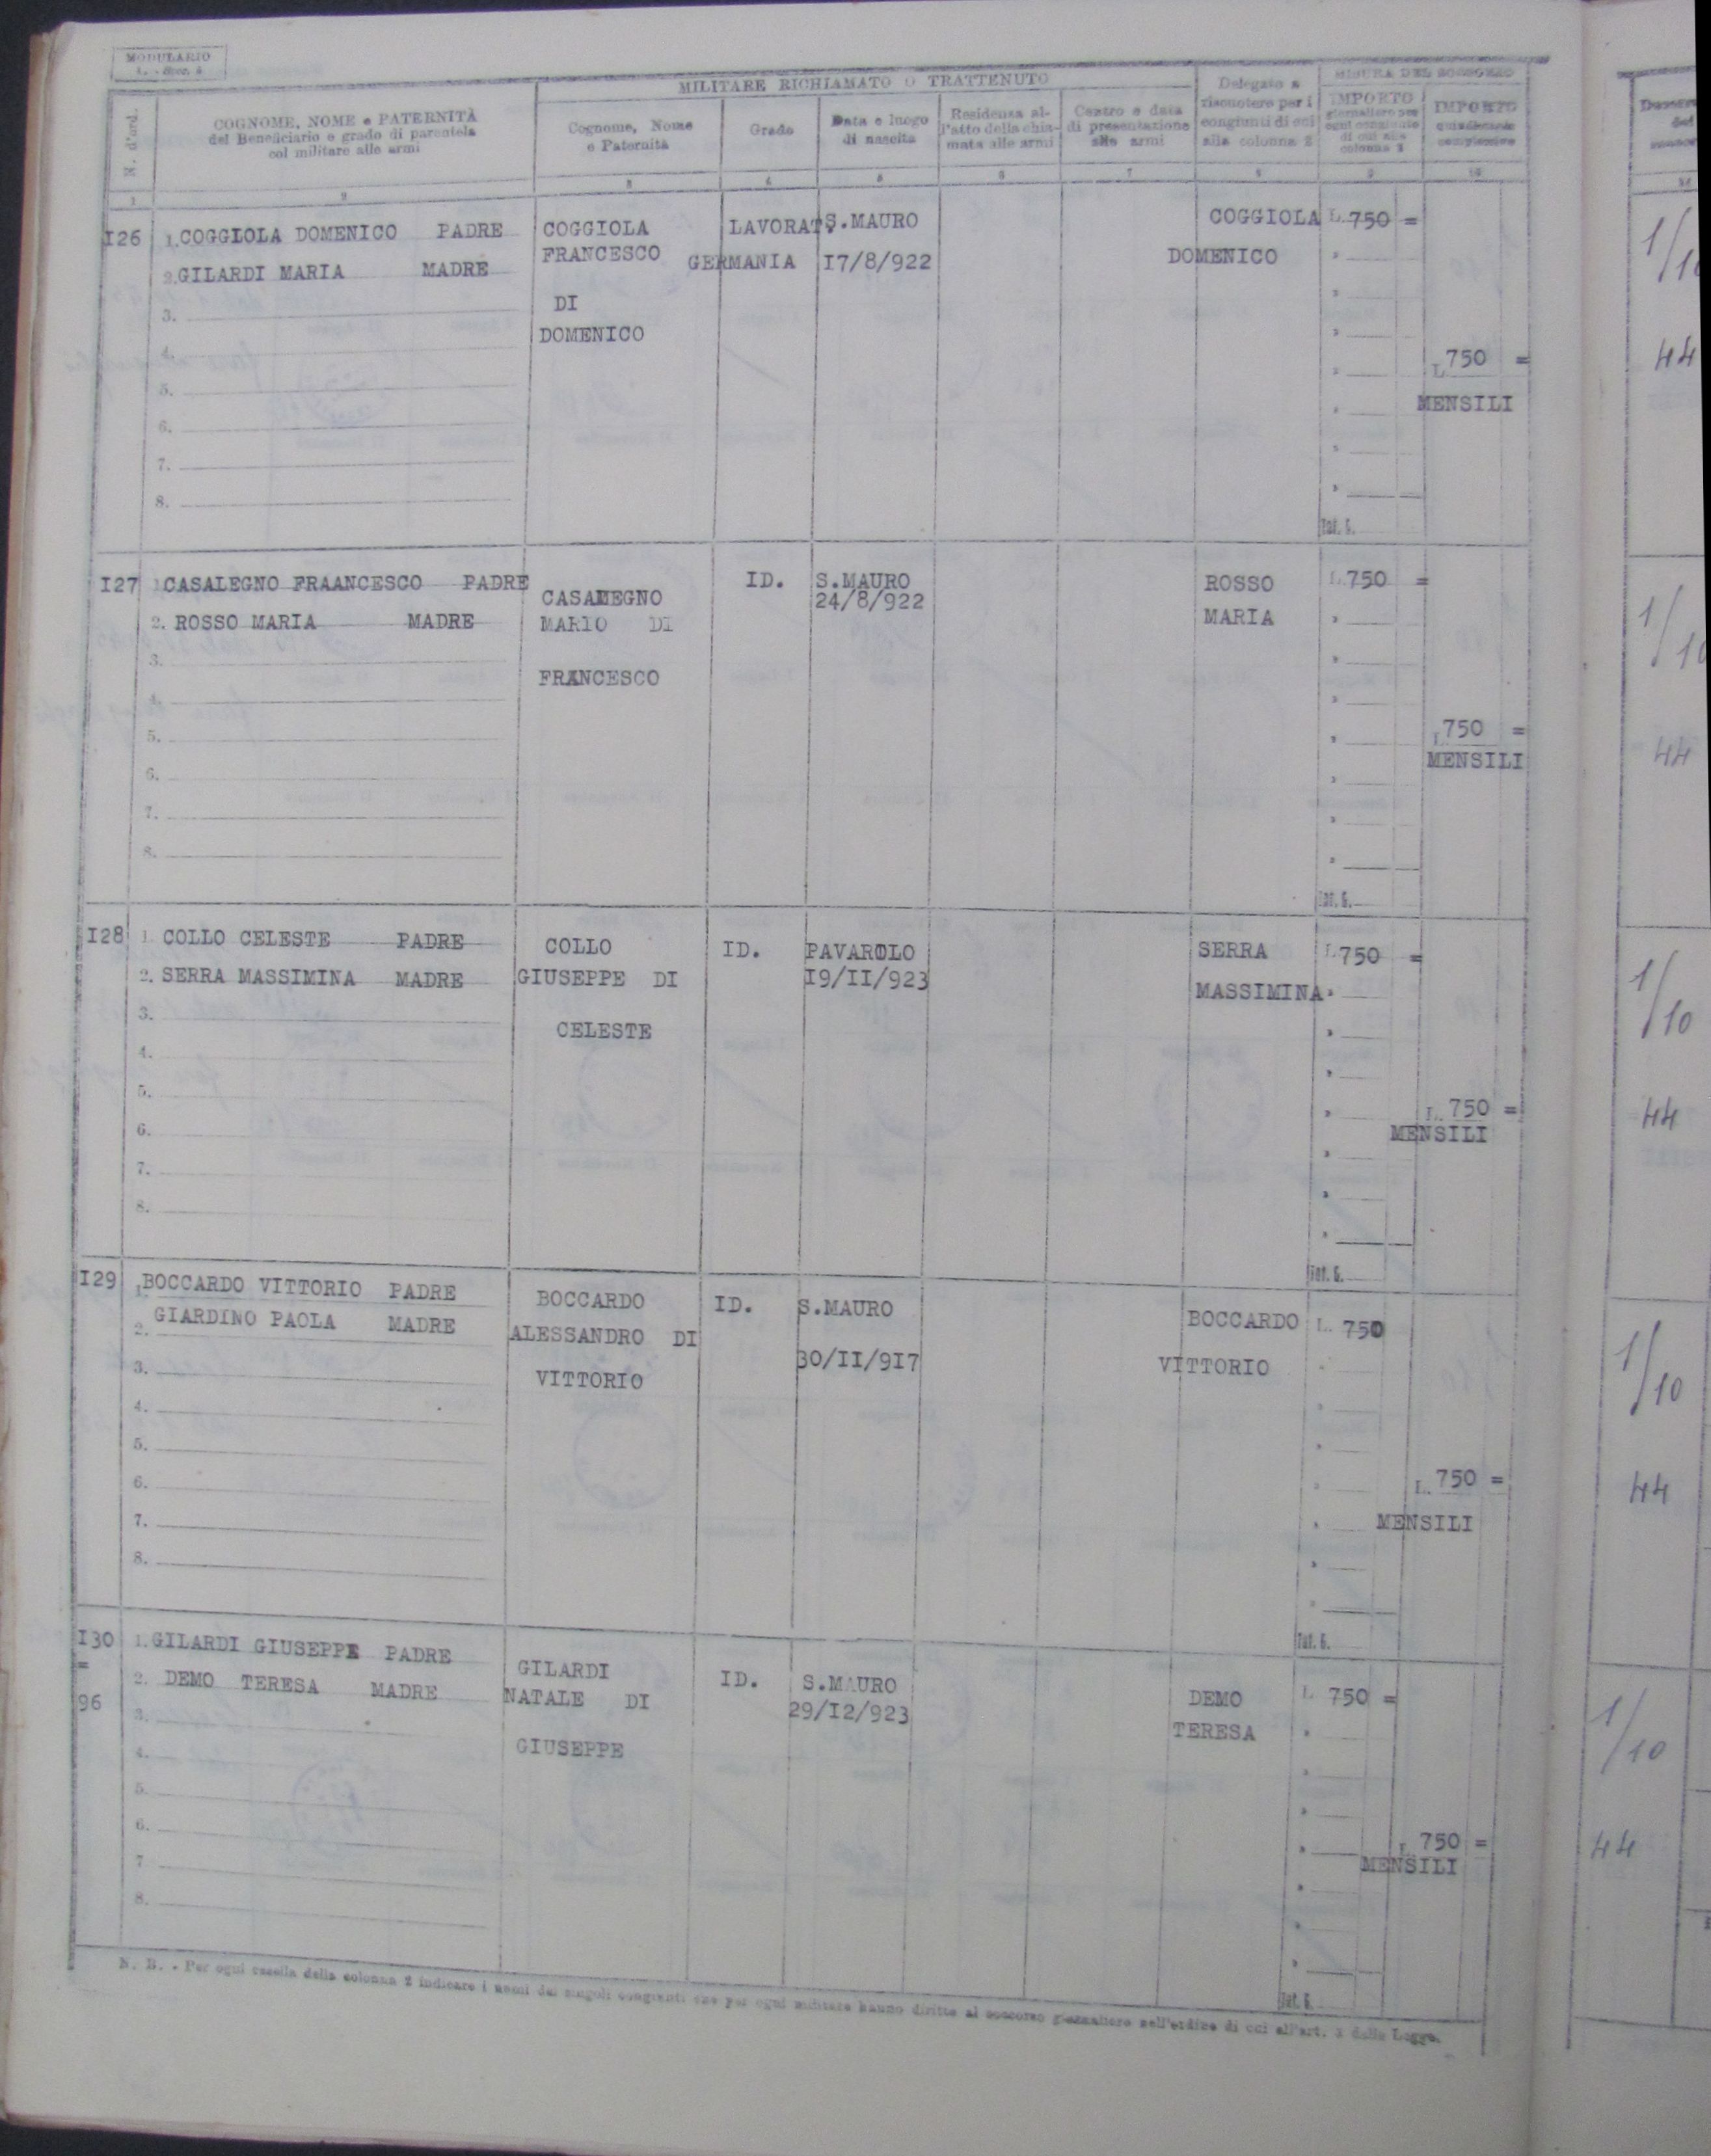 MODULARIO
N. d'ord.
COGNOME, NOME e PATERNITÀ
del Beneficiario e grado di parentela
col militare alle armi
MILITARE RICHIAMATO O TRATTENUTO
Cognome, Nome
e Paternità
Grado
Data e luogo
di nascita
Residenza al-
l'atto della chia-
mata alle armi
Centro e data
di presentazione
alle armi
Delegato a
riscuotere per i
congiunti di cui
alla colonna 2
MISURA DEL SOCCORSO
IMPORTO
giornaliero per
ogni congiunto
di cui alla
colonna 2
IMPORTO
quindicinale
complessivo
I26
1. COGGIOLA DOMENICO PADRE
2. GILARDI MARIA MADRE
3.
4.
5.
6.
7.
8.
COGGIOLA
FRANCESCO
DI
DOMENICO
LAVORAT.
GERMANIA
S.MAURO
I7/8/922
COGGIOLA
DOMENICO
L. 750 =
Tot. G.
L. 750 =
MENSILI
1/10
44
I27
CASALEGNO FRAANCESCO PADRE
2. ROSSO MARIA MADRE
3.
4.
5.
6.
7.
8.
CASALEGNO
MARIO DI
FRANCESCO
ID.
S.MAURO
24/8/922
ROSSO
MARIA
L. 750 =
Tot. G.
L. 750 =
MENSILI
1/10
44
I28
1. COLLO CELESTE PADRE
2. SERRA MASSIMINA MADRE
3.
4.
5.
6.
7.
8.
COLLO
GIUSEPPE DI
CELESTE
ID.
PAVAROLO
I9/II/923
SERRA
MASSIMINA
L. 750 =
Tot. G.
L. 750 =
MENSILI
1/10
44
I29
1. BOCCARDO VITTORIO PADRE
2. GIARDINO PAOLA MADRE
3.
4.
5.
6.
7.
8.
BOCCARDO
ALESSANDRO DI
VITTORIO
ID.
S.MAURO
30/II/9I7
BOCCARDO
VITTORIO
L. 750
Tot. G.
L. 750 =
MENSILI
1/10
44
I30
=
96
1. GILARDI GIUSEPPE PADRE
2. DEMO TERESA MADRE
3.
4.
5.
6.
7
8.
GILARDI
NATALE DI
GIUSEPPE
ID.
S.MAURO
29/I2/923
DEMO
TERESA
L. 750 =
Tot. G.
L. 750 =
MENSILI
1/10
44
N. B. - Per ogni casella della colonna 2 indicare i nomi dei singoli congiunti che per ogni militare hanno diritto al soccorso giornaliero nell'ordine di cui all'art. 3 della Legge.